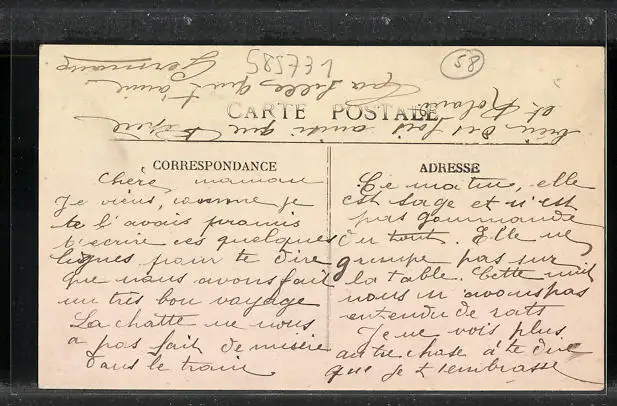 58
585731
CARTE POSTALE
CORRESPONDANCE
chère maman
Je viens, comme je
te l'avais promis
t'écrire ces quelques
lignes pour te dire
que nous avons fait
un très bon voyage
La chatte ne nous
a pas fait de misère
dans le train
ADRESSE
Ce matin, elle
est sage et n'est
pas gourmande
du tout. Elle ne
grimpe pas sur
la table. Cette nuit
nous n'avons pas
entendu de rats
Je ne vois plus
autre chose à te dire
que je t'embrasse
bien des fois ainsi que
et Roland
Ta fille qui t'aime
Germaine